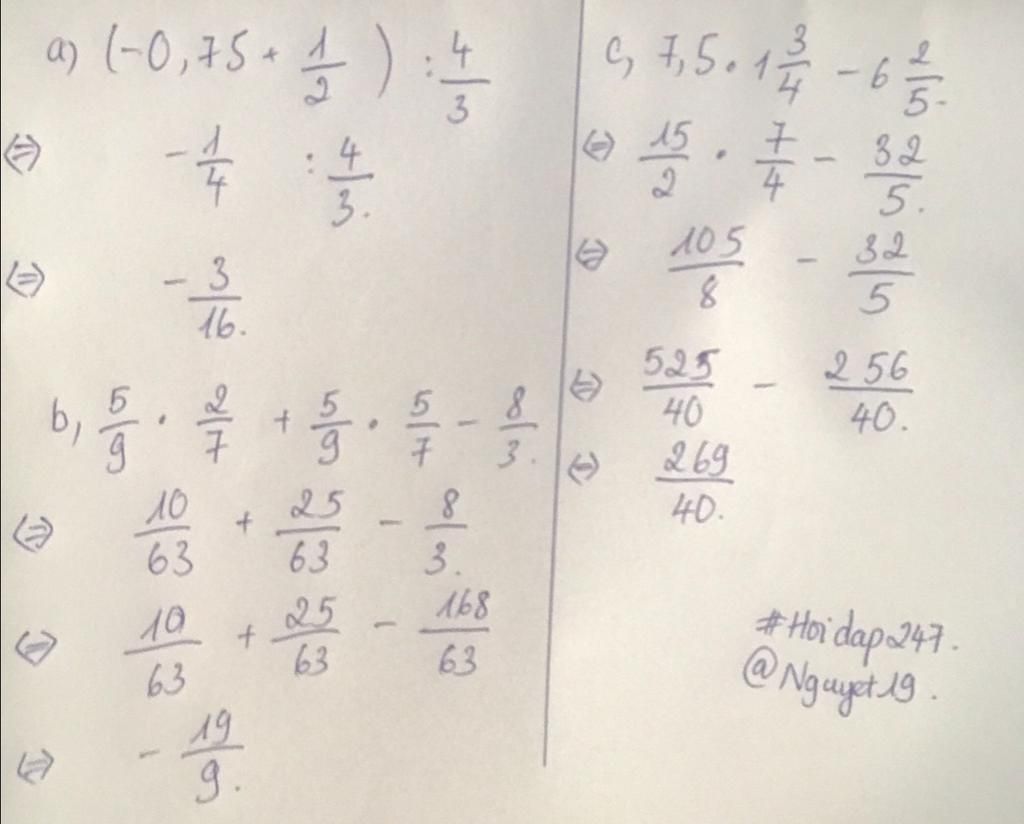 a) (-0,75 + 1/2) : 4/3
⇔ -1/4 : 4/3.
⇔ -3/16.
b, 5/9 . 2/7 + 5/9 . 5/7 - 8/3.
⇔ 10/63 + 25/63 - 8/3.
⇔ 10/63 + 25/63 - 168/63
⇔ -19/9.
c, 7,5 . 1 3/4 - 6 2/5.
⇔ 15/2 . 7/4 - 32/5.
⇔ 105/8 - 32/5
⇔ 525/40 - 256/40.
⇔ 269/40.
#Hoidap247.
@Nguyet19.